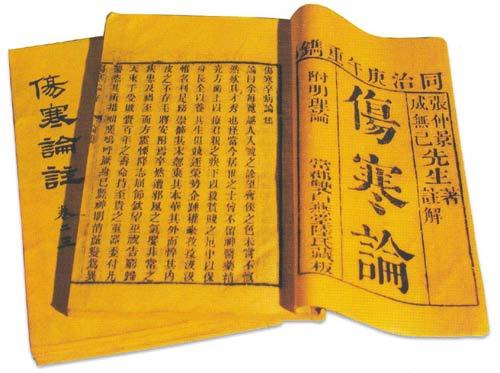 同治庚午重鐫
張仲景先生著
成無已先生註解
傷寒論
附明理論
常郡雙白燕堂陸氏藏板
傷寒卒病論集
論曰余每覽越人入虢之診望齊侯之色未嘗不慨
然歎其才秀也怪當今居世之士曾不留神醫藥精
究方術上以療君親之疾下以救貧賤之厄中以保
身長全以養其生但競逐榮勢企踵權豪孜孜汲汲
惟名利是務崇飾其末忽棄其本華其外而悴其內
皮之不存毛將安附焉卒然遭邪風之氣嬰非常之
疾患及禍至而方震慄降志屈節欽望巫祝告窮歸
天束手受敗賫百年之壽命持至貴之重器委付凡
醫恣其所措咄嗟嗚呼厥身已斃神明消滅變為異
傷寒論註
卷二三